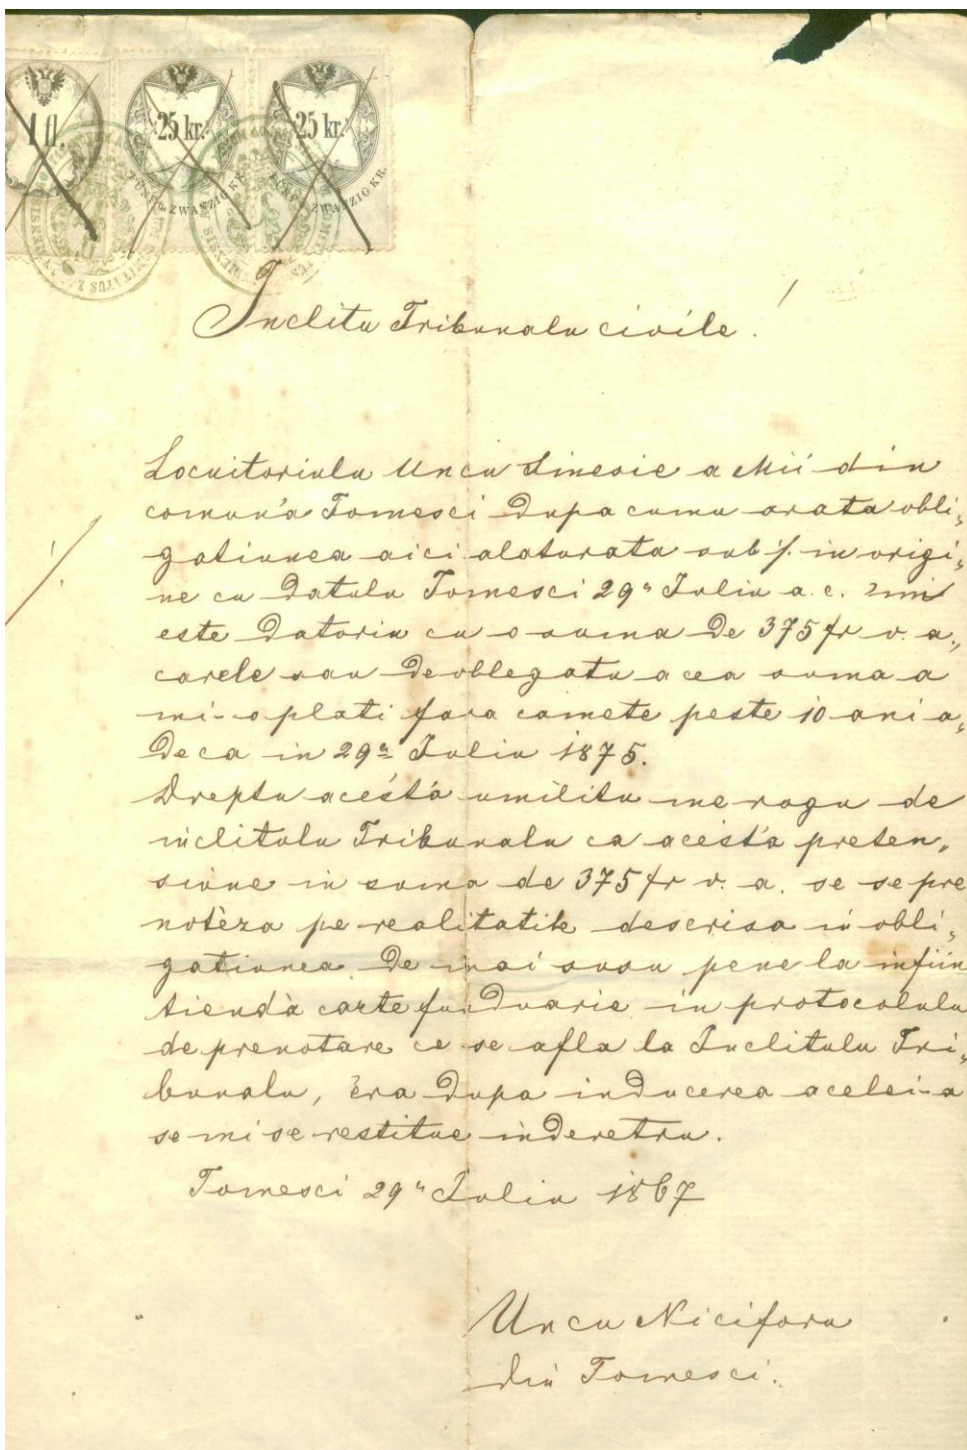 1 fl.
25 kr.
25 kr.
FÜNF & ZWANZIG KR.
FÜNF & ZWANZIG KR.
Inclitu Tribunalu civile!
Locuitoriulu Uncu Sinesie a Mii din
comun'a Tomesci dupa cumu arata obli„
gatiunea aici alaturata sub ·/. in origi„
ne cu datulu Tomesci 29ª Juliu a. c. mi
este datoriu cu o suma de 375 fr v. a.,
carele sau deoblegatu acea suma a
mi-o plati fara camete peste 10 ani a„
deca in 29ª Juliu 1875.
Dreptu acést'a umilitu me rogu de
inclitulu Tribunalu ca acést'a preten„
siune in suma de 375 fr v. a. se se pre
notéza pe realitatile descrisa in obli„
gatiunea de mai susu pene la infiin
tiend'a carte funduarie in protocolulu
de prenotare ce se afla la Inclitulu Tri„
bunalu, éra dupa inducerea acelei-a
se mi se restitue inderetru.
Tomesci 29ª Juliu 1867
Uncu Niciforu
din Tomesci.